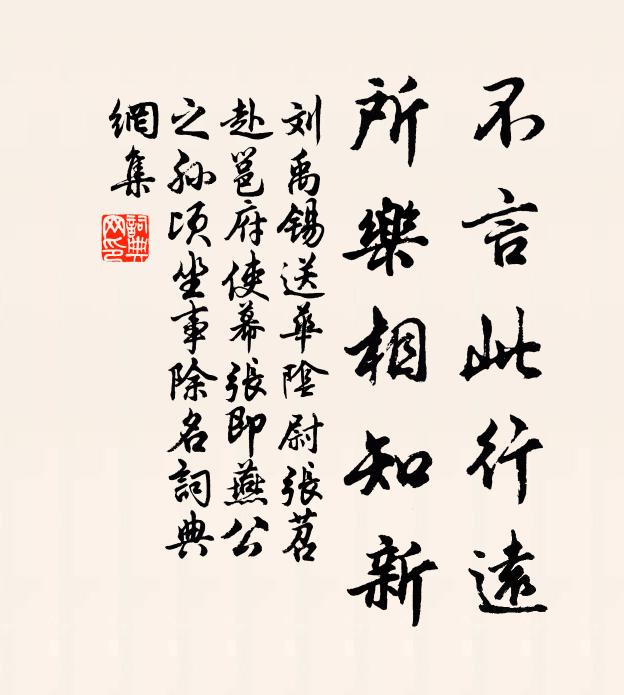 不言此行遠
所樂相知新
刘禹锡送華陰尉張苕
赴邕府使幕張即燕公
之孫頃坐事除名詞典
網集
詞典網印